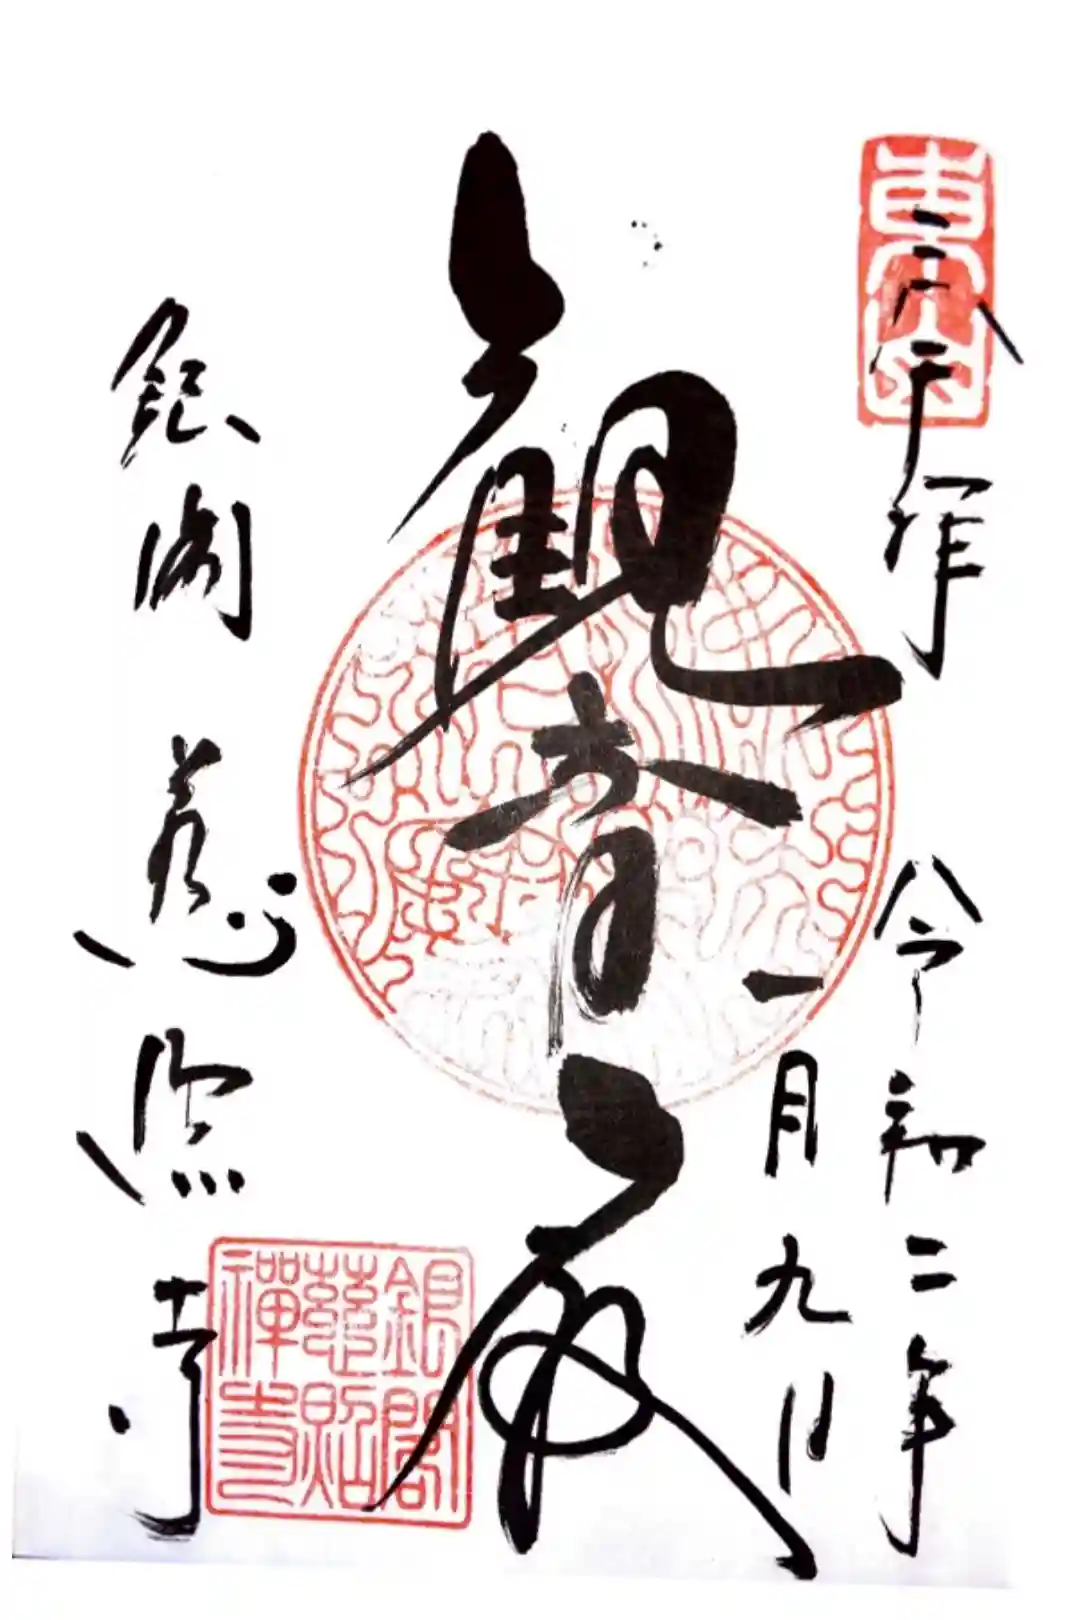 奉拝
令和二年
一月九日
観音殿
銀閣 慈照寺
銀閣
慈照
禅寺